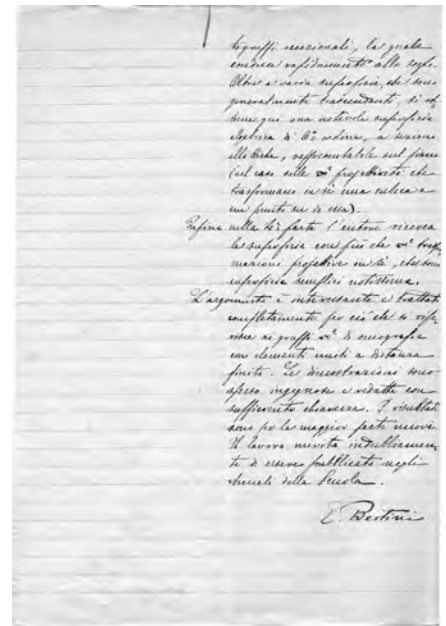 to gruppi eccezionali, la quale
conduce rapidamente allo scopo.
Oltre a varie superficie, che sono
generalmente trascendenti, si ot-
tiene qui una notevole superficie
algebrica di 6º ordine, a sezioni
ellittiche, rappresentabile sul piano
(nel caso delle ∞² projettività che
trasformano in sè una cubica e
un punto di essa).
Infine nella 4ª parte l'autore ricerca
le superficie con più che ∞² trasfor-
mazioni projettive in sè, che sono
superficie semplici notissime.
L'argomento è interessante e trattato
completamente per ciò che si rife-
risce ai gruppi ∞² di omografie
con elementi uniti a distanza
finita. Le dimostrazioni sono
spesso ingegnose e redatte con
sufficiente chiarezza. I risultati
sono per la maggior parte nuovi.
Il lavoro merita indubbiamen-
te di essere pubblicato negli
Annali della Scuola.
E. Bertini